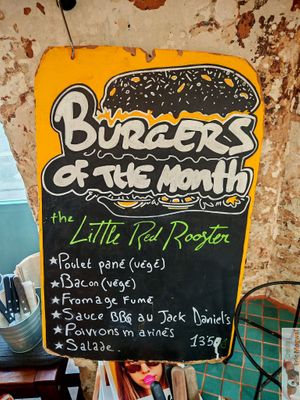 BURGERS
OF THE MONTH
the
Little Red Rooster
★Poulet pané (végé)
★Bacon (végé)
★Fromage fumé
★Sauce BBQ au Jack Daniel's
★Poivrons marinés
★Salade 13'50